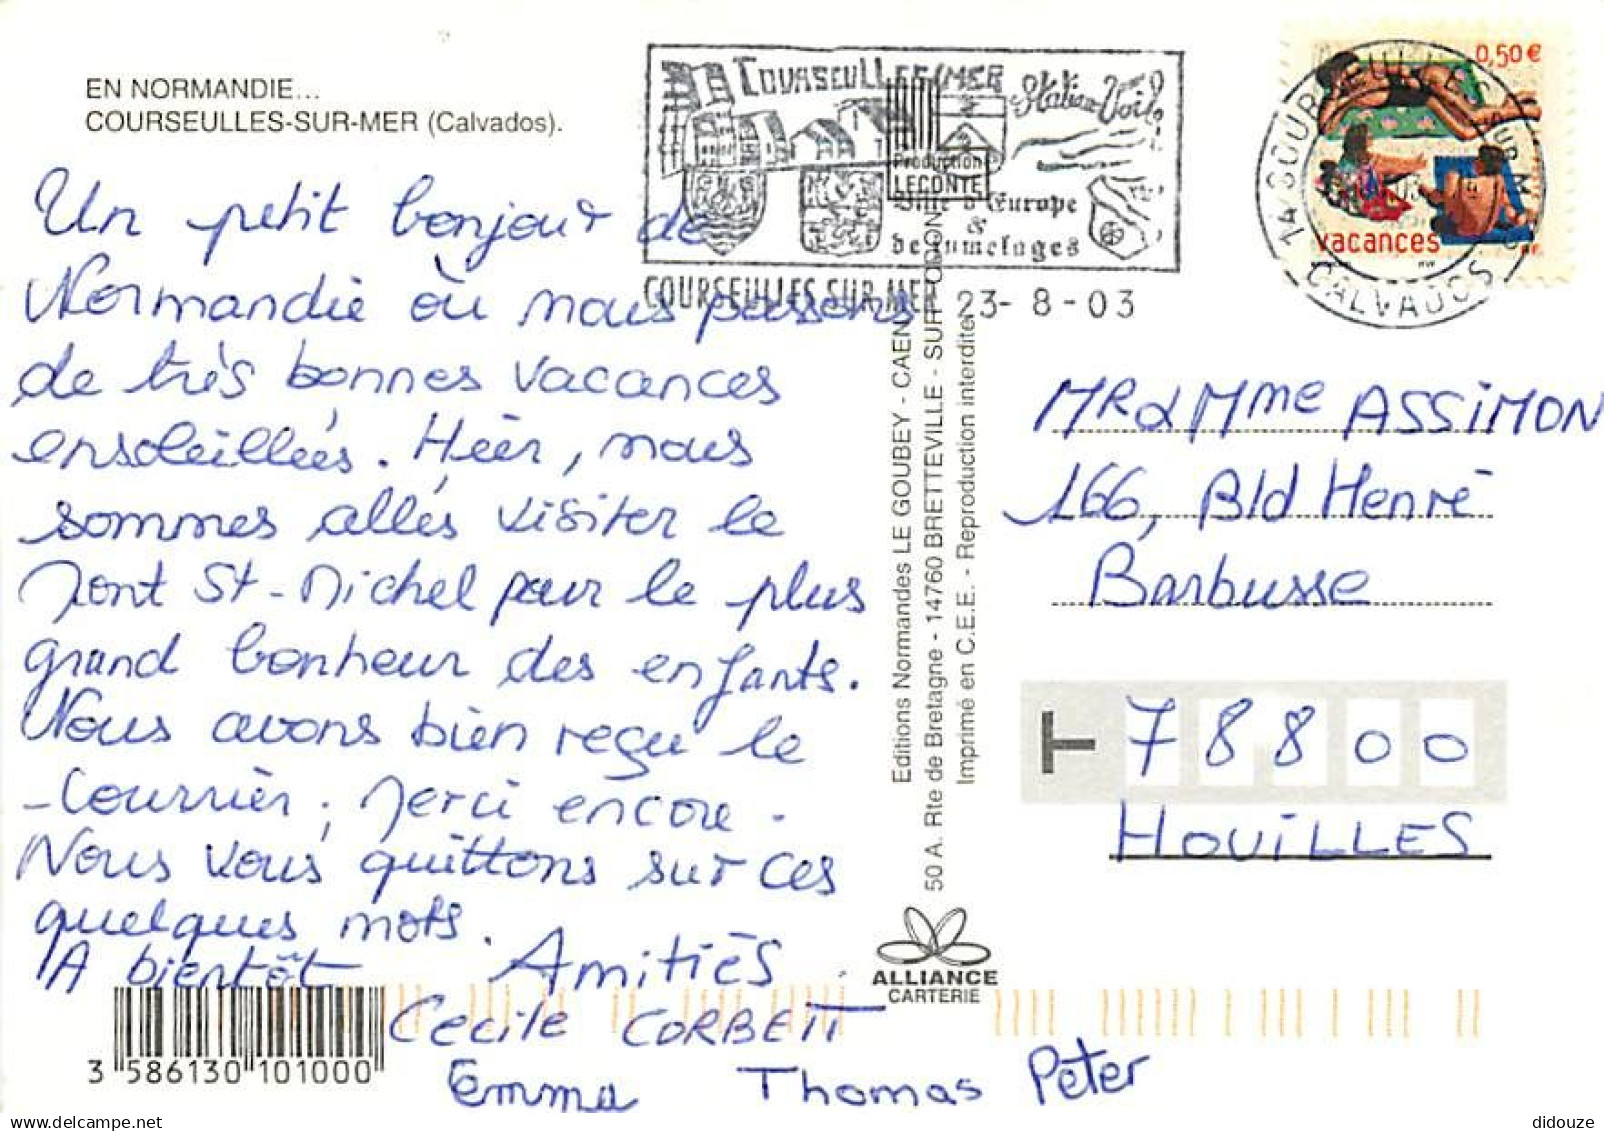 EN NORMANDIE...
COURSEULLES-SUR-MER (Calvados).
Un petit bonjour de
Normandie où nous passons
de très bonnes vacances
ensoleillées. Hier, nous
sommes allés visiter le
Mont St-Michel pour le plus
grand bonheur des enfants.
Nous avons bien reçu le
courrier, Merci encore.
Nous vous quittons sur ces
quelques mots.
A bientôt Amitiés.
Cecile CORBETT
Emma Thomas Peter
3 586130 101000
COURSEULLES/MER
Station Voile
Production
LECONTE
Ville d'Europe
&
de Jumelages
COURSEULLES SUR MER 23-8-03
0,50 €
vacances
RF
14 COURSEULLES SUR MER
CALVADOS
Editions Normandes LE GOUBEY - CAEN
50 A. Rte de Bretagne - 14760 BRETTEVILLE - SUR - ODON
Imprimé en C.E.E. - Reproduction interdite
ALLIANCE
CARTERIE
Mr & Mme ASSIMON
166, Bld Henri
Barbusse
T 78800
HOUILLES
didouze